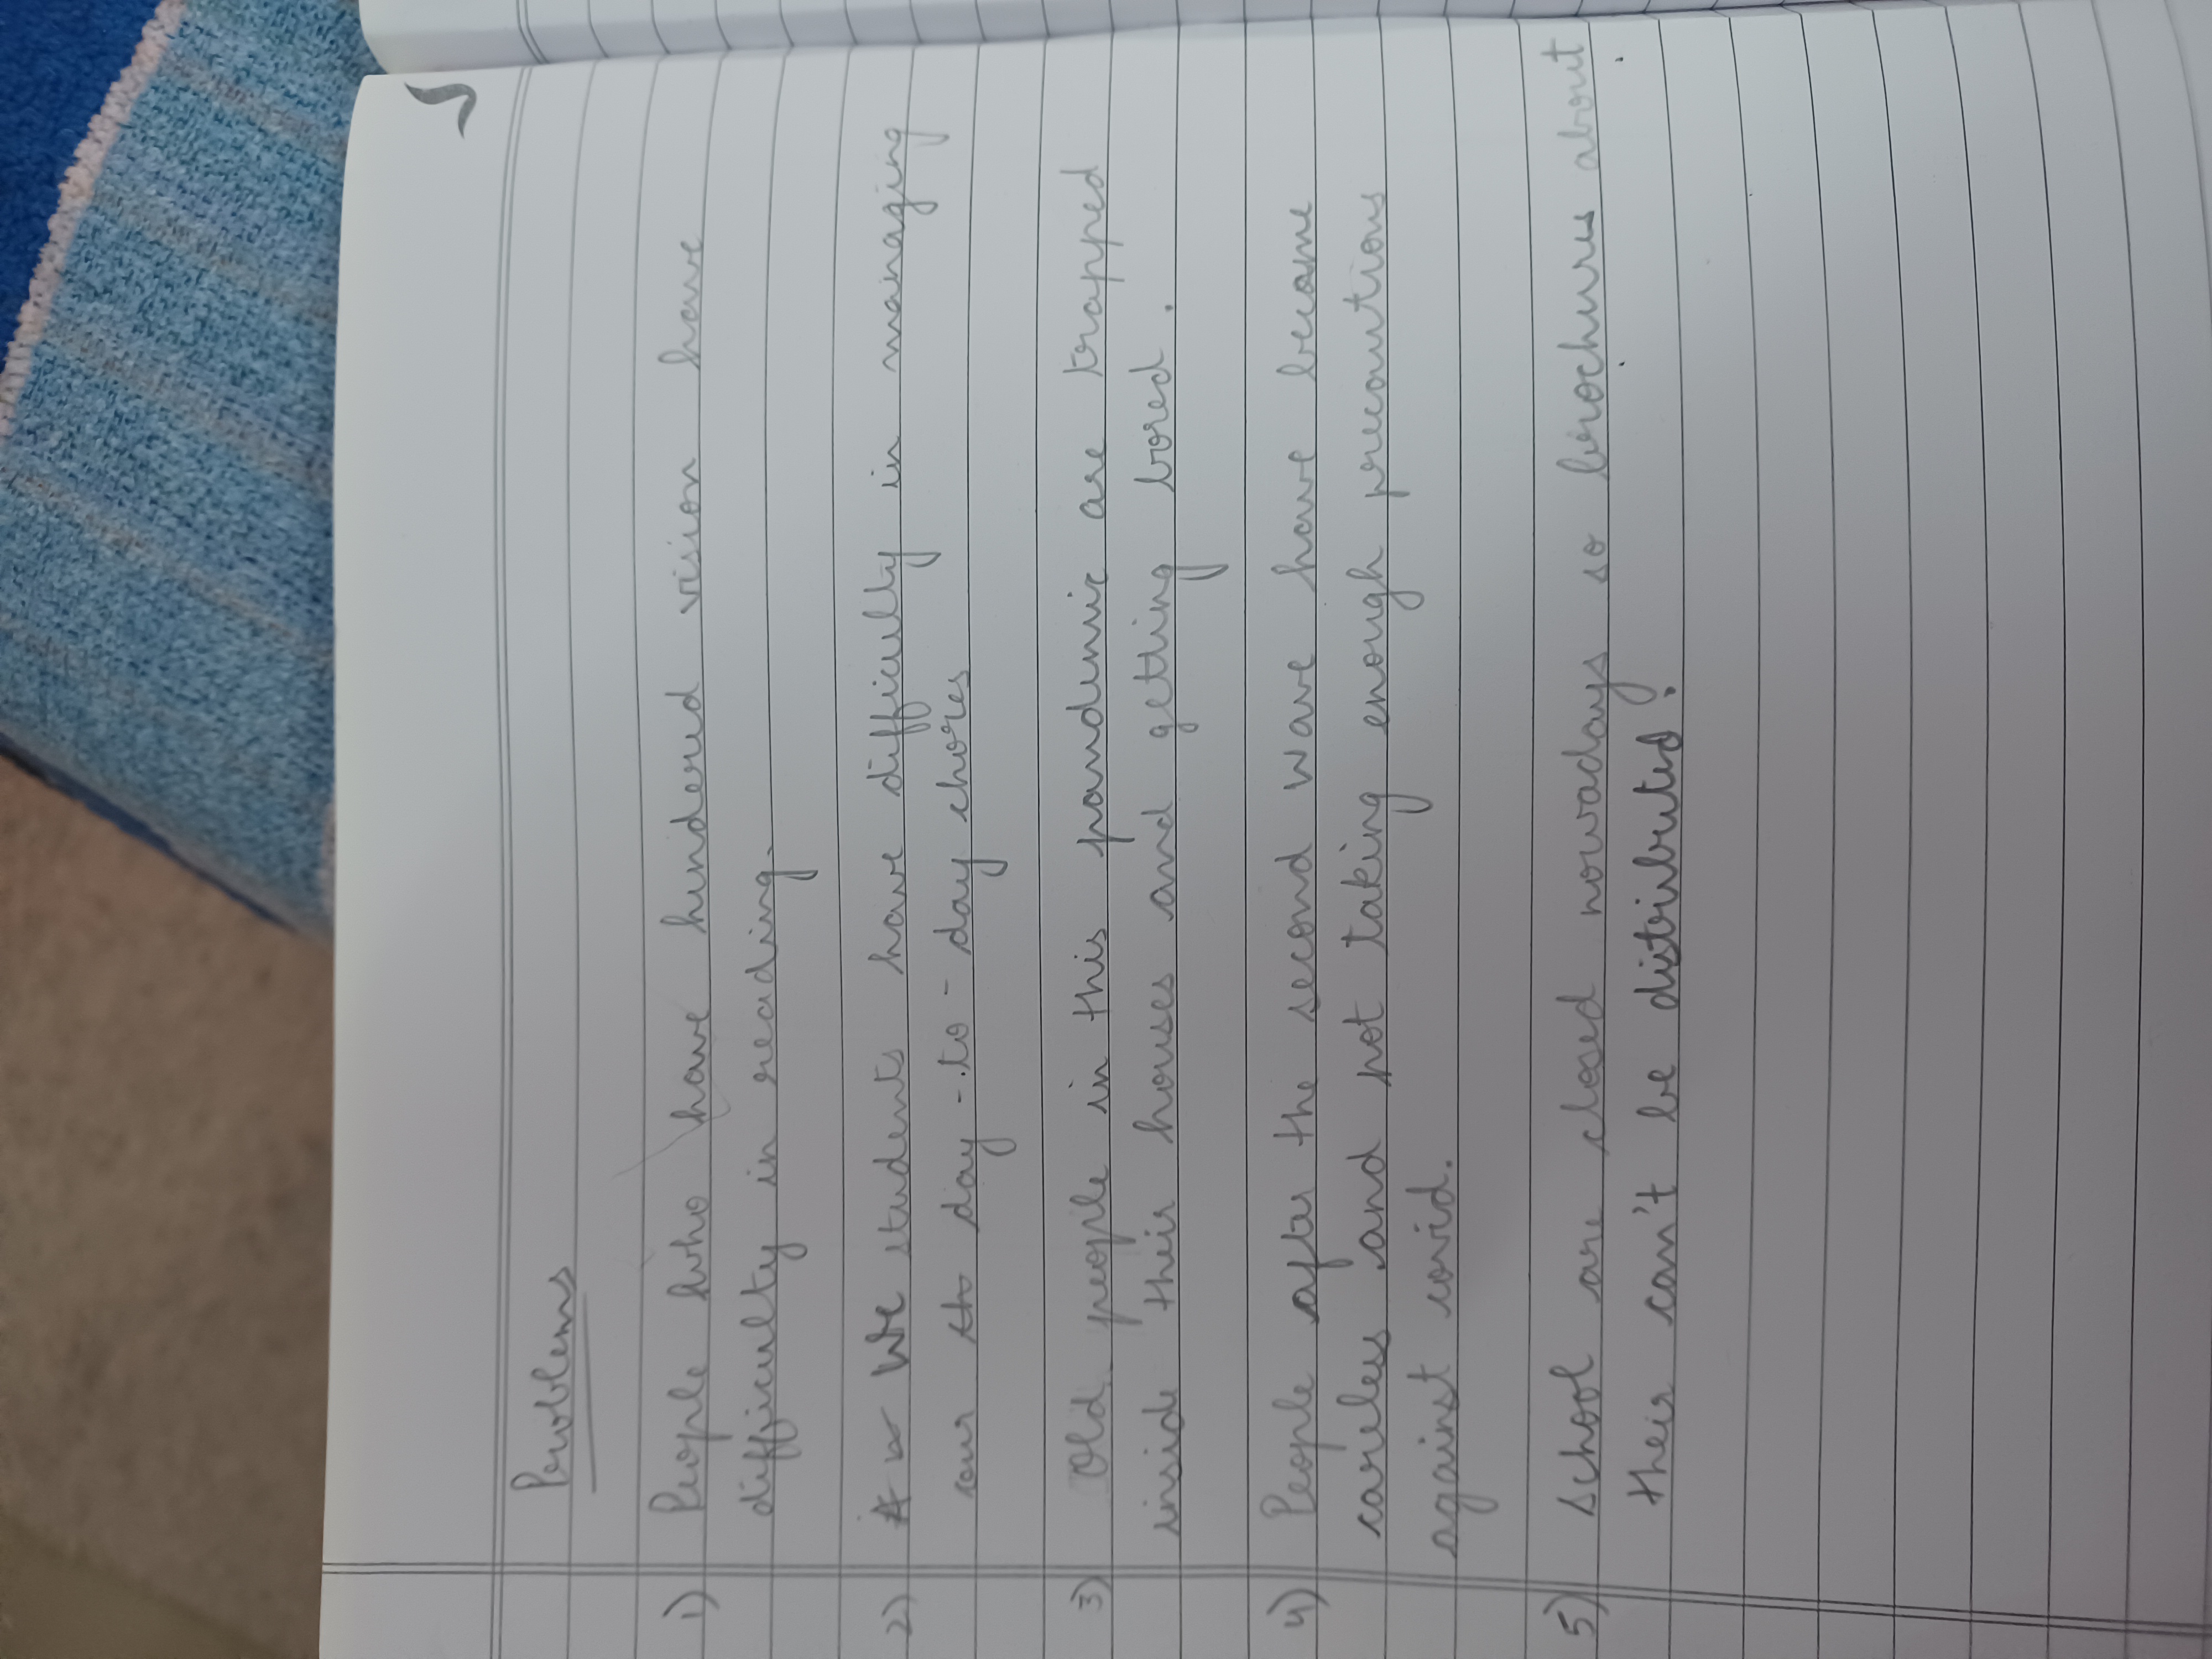 Problems
1) People who have hindered vision have
difficulty in reading.
2) We students have difficulty in managing
our day-to-day chores
3) Old people in this pandemic are trapped
inside their houses and getting bored.
4) People after the second wave have become
careless and not taking enough precautions
against covid.
5) School are closed nowadays so brochures about
their can't be distributed.